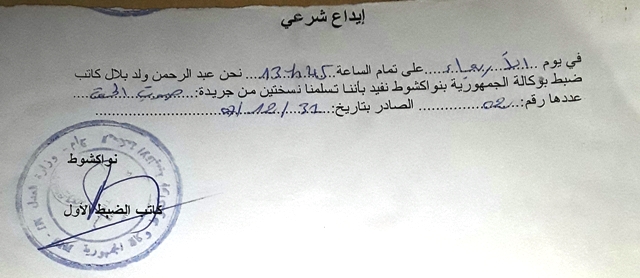 إيداع شرعي
في يوم ...الأربعاء... على تمام الساعة...13h45... نحن عبد الرحمن ولد بلال كاتب
ضبط بوكالة الجمهورية بنواكشوط نفيد بأننا تسلمنا نسختين من جريدة:
عددها رقم:...02... الصادر بتاريخ:...31/12/
نواكشوط
كاتب الضبط الأول